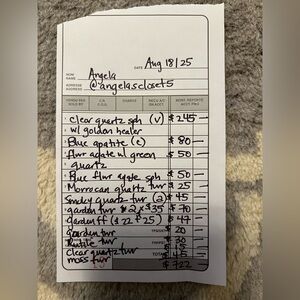 DATE Aug 18/25
NOM NAME Angela
ADRESSE ADDRESS @angelascloset5
VENDU PAR SOLD BY C.R. C.O.D. CHARGE REÇU A/C ON ACCT. MONT. REPORTÉ ACCT. FWD.
clear quartz sph (v) $245 -
w/ golden healer
Blue apatite (c) $80 -
flwr agate w/ green $50 -
quartz
Blue flwr agate sph $50 -
Morrocan quartz twr $25 -
Smokey quartz twr (2) $45 -
garden twr $2 x $35 $70
garden ff ($22 $25) $47
garden twr $20
Rutile twr $30
Clear quartz twr $15
moss twr $45
$722 -